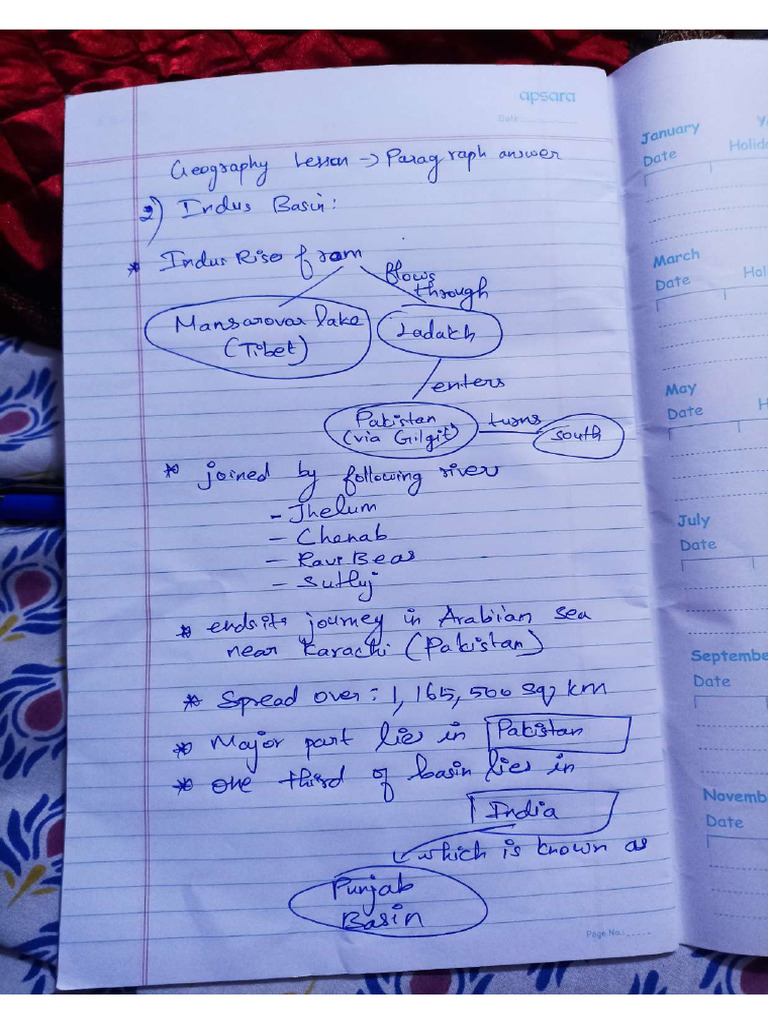 apsara
Date
Geography Lesson -> Paragraph answer
2) Indus Basin:
* Indus Rise from
flows
through
Mansarovar lake
(Tibet)
Ladakh
enters
Pakistan
(via Gilgit)
turns
south
* joined by following river
- Jhelum
- Chenab
- Ravi Beas
- Sutluj
* ends its journey in Arabian sea
near Karachi (Pakistan)
* Spread over: 1,165,500 sq km
* Major part lie in Pakistan
* one third of basin lies in
India
which is known as
Punjab
Basin
Page No.:
January
Date
March
Date
May
Date
July
Date
Date
Date